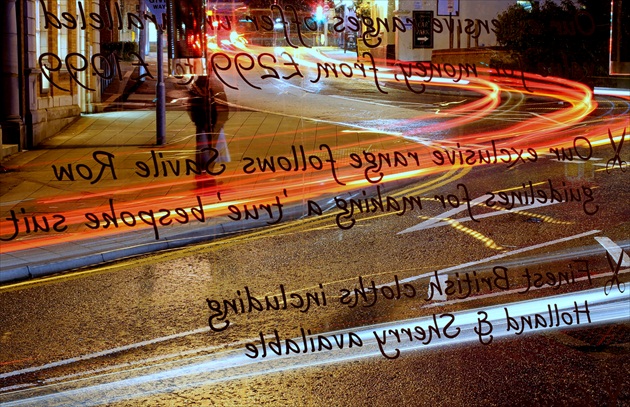 ranges offer unparalleled
for money, from £299 to £1099
Our exclusive range follows Savile Row
guidelines for making a 'true' bespoke suit
Finest British cloths including
Holland & Sherry available